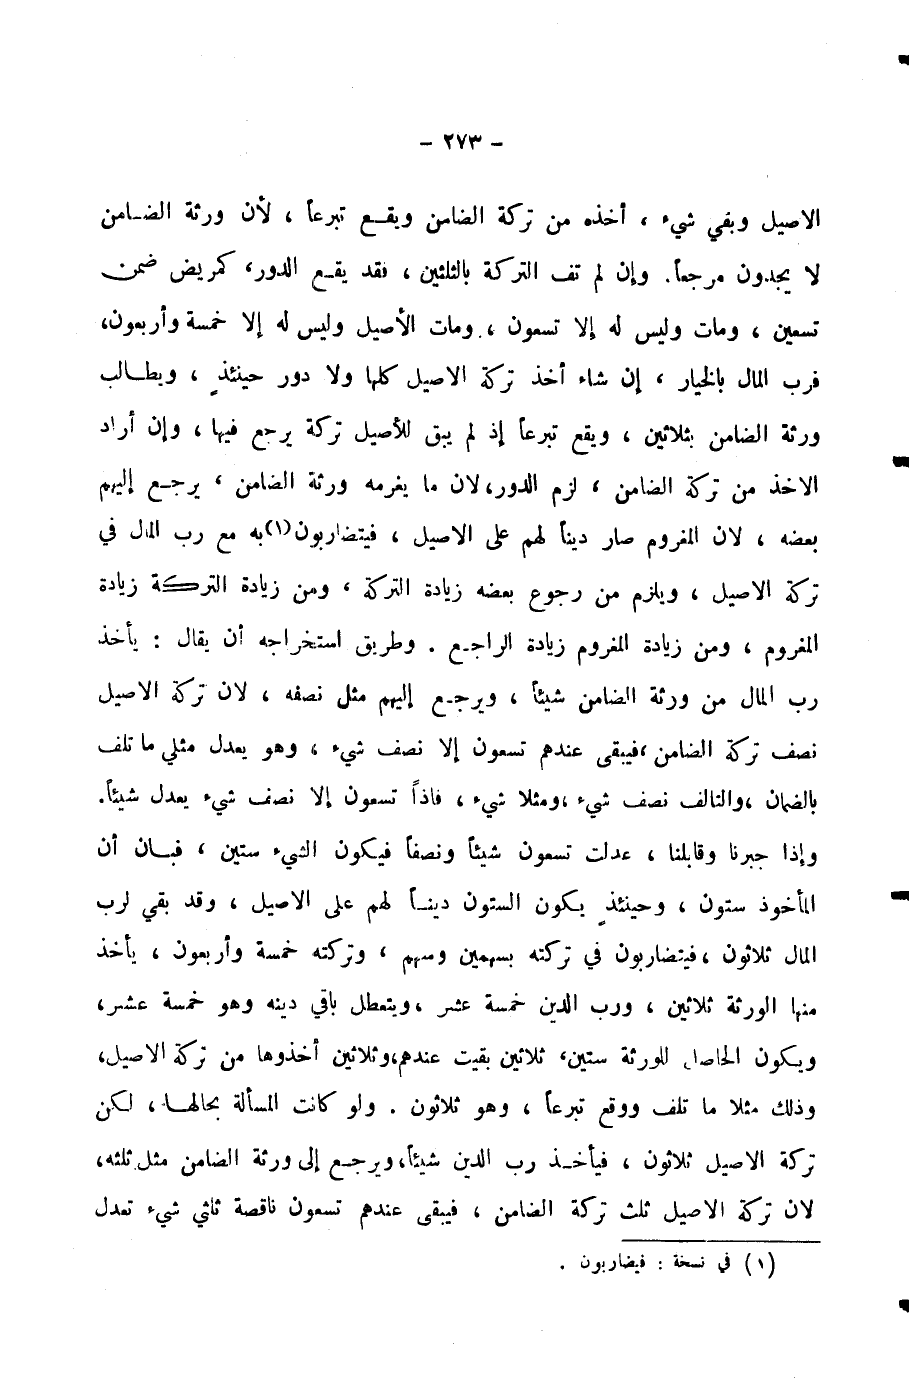 - ٢٧٣ -
الاصيل وبقي شيء ، أخذه من تركة الضامن ويقـع تبرعاً ، لأن ورثة الضـامن
لا يجدون مرجعاً. وإن لم تف التركة بالثلثين ، فقد يقـع الدور، كمريض ضمن
تسعين ، ومات وليس له إلا تسعون ، ومات الأصيل وليس له إلا خمسة وأربعون،
فرب المال بالخيار ، إن شاء أخذ تركة الاصيل كلها ولا دور حينئذٍ ، ويطـالب
ورثة الضامن بثلاثين ، ويقع تبرعاً إذ لم يبق للأصيل تركة يرجع فيها ، وإن أراد
الاخذ من تركة الضامن ، لزم الدور،لان ما يغرمه ورثة الضامن ، يرجـع إليهم
بعضه ، لان المغروم صار ديناً لهم على الاصيل ، فيتضاربون(١)به مع رب المال في
تركة الاصيل ، ويلزم من رجوع بعضه زيادة التركة ، ومن زيادة التركة زيادة
المغروم ، ومن زيادة المغروم زيادة الراجـع . وطريق استخراجه أن يقال : يأخذ
رب المال من ورثة الضامن شيئاً ، ويرجـع إليهم مثل نصفه ، لان تركة الاصيل
نصف تركة الضامن ،فيبقى عندهم تسعون إلا نصف شيء ، وهو يعدل مثلي ما تلف
بالضمان ،والتالف نصف شيء ،ومثلا شيء ، فاذاً تسعون إلا نصف شيء يعدل شيئاً.
وإذا جبرنا وقابلنا ، عدلت تسعون شيئاً ونصفاً فيكون الشيء ستين ، فبـان أن
المأخوذ ستون ، وحينئذٍ يكون الستون دينـاً لهم على الاصيل ، وقد بقي لرب
المال ثلاثون ،فيتضاربون في تركته بسهمين وسهم ، وتركته خمسة وأربعون ، يأخذ
منها الورثة ثلاثين ، ورب الدين خمسة عشر ،ويتعطل باقي دينه وهو خمسة عشر،
ويكون الحاصل للورثة ستين، ثلاثين بقيت عندهم،وثلاثين أخذوها من تركة الاصيل،
وذلك مثلا ما تلف ووقع تبرعاً ، وهو ثلاثون . ولو كانت المسألة بحالهـا ، لكن
تركة الاصيل ثلاثون ، فيأخـذ رب الدين شيئاً،ويرجـع إلى ورثة الضامن مثل ثلثه،
لان تركة الاصيل ثلث تركة الضامن ، فيبقى عندهم تسعون ناقصة ثلثي شيء تعدل
(١) في نسخة : فيضاربون .